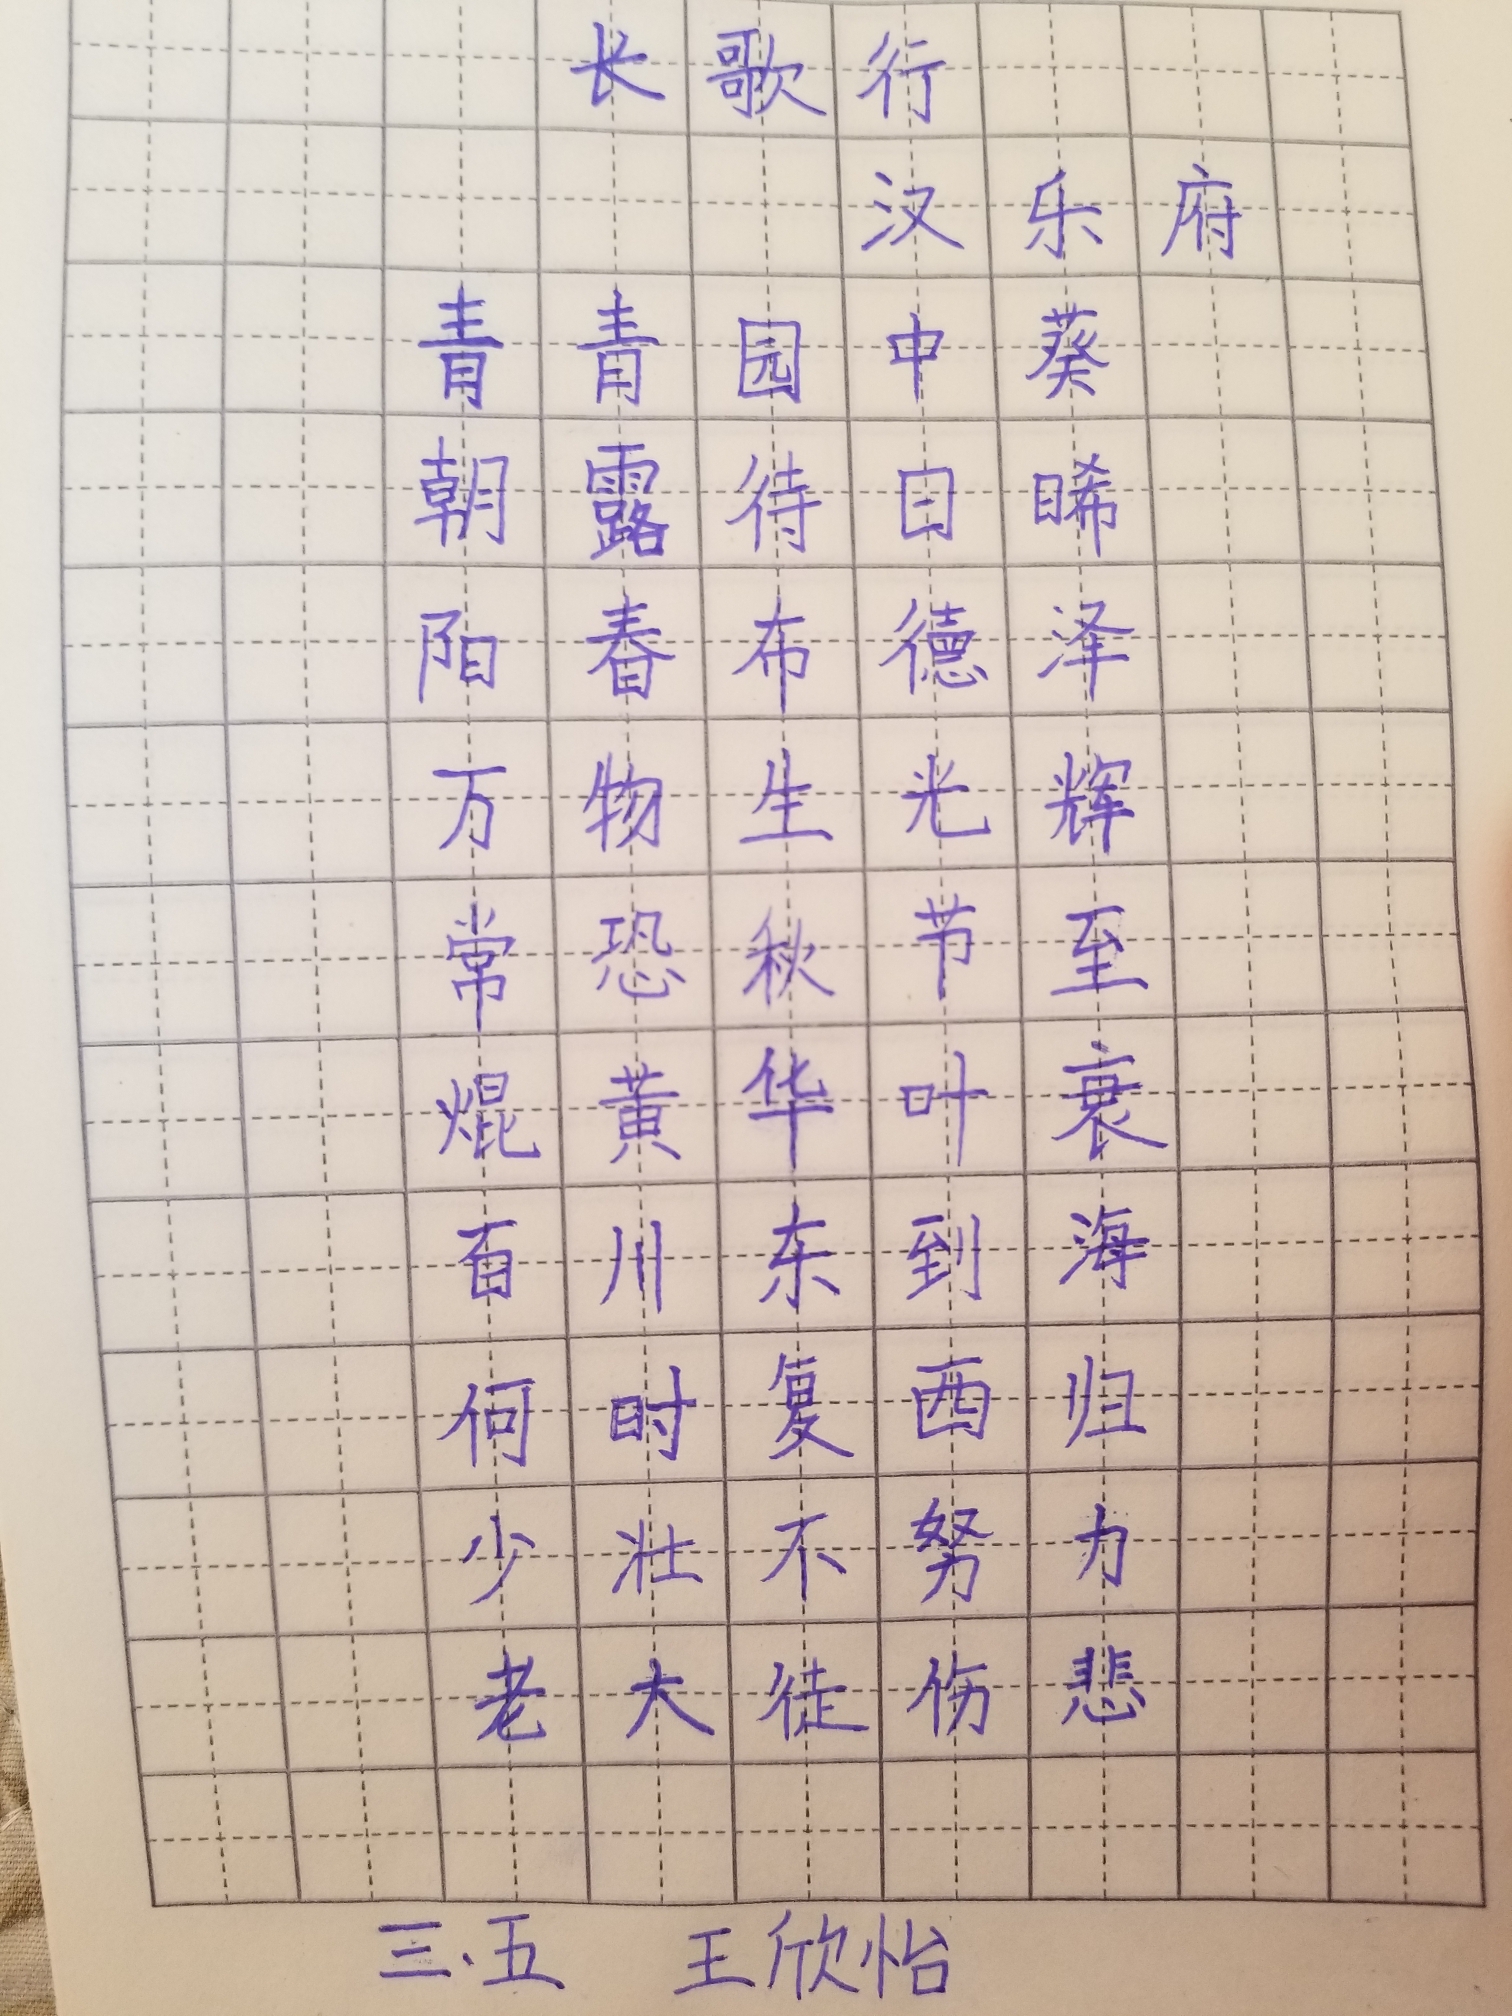 长歌行
汉乐府
青青园中葵
朝露待日晞
阳春布德泽
万物生光辉
常恐秋节至
焜黄华叶衰
百川东到海
何时复西归
少壮不努力
老大徒伤悲
三·五 王欣怡